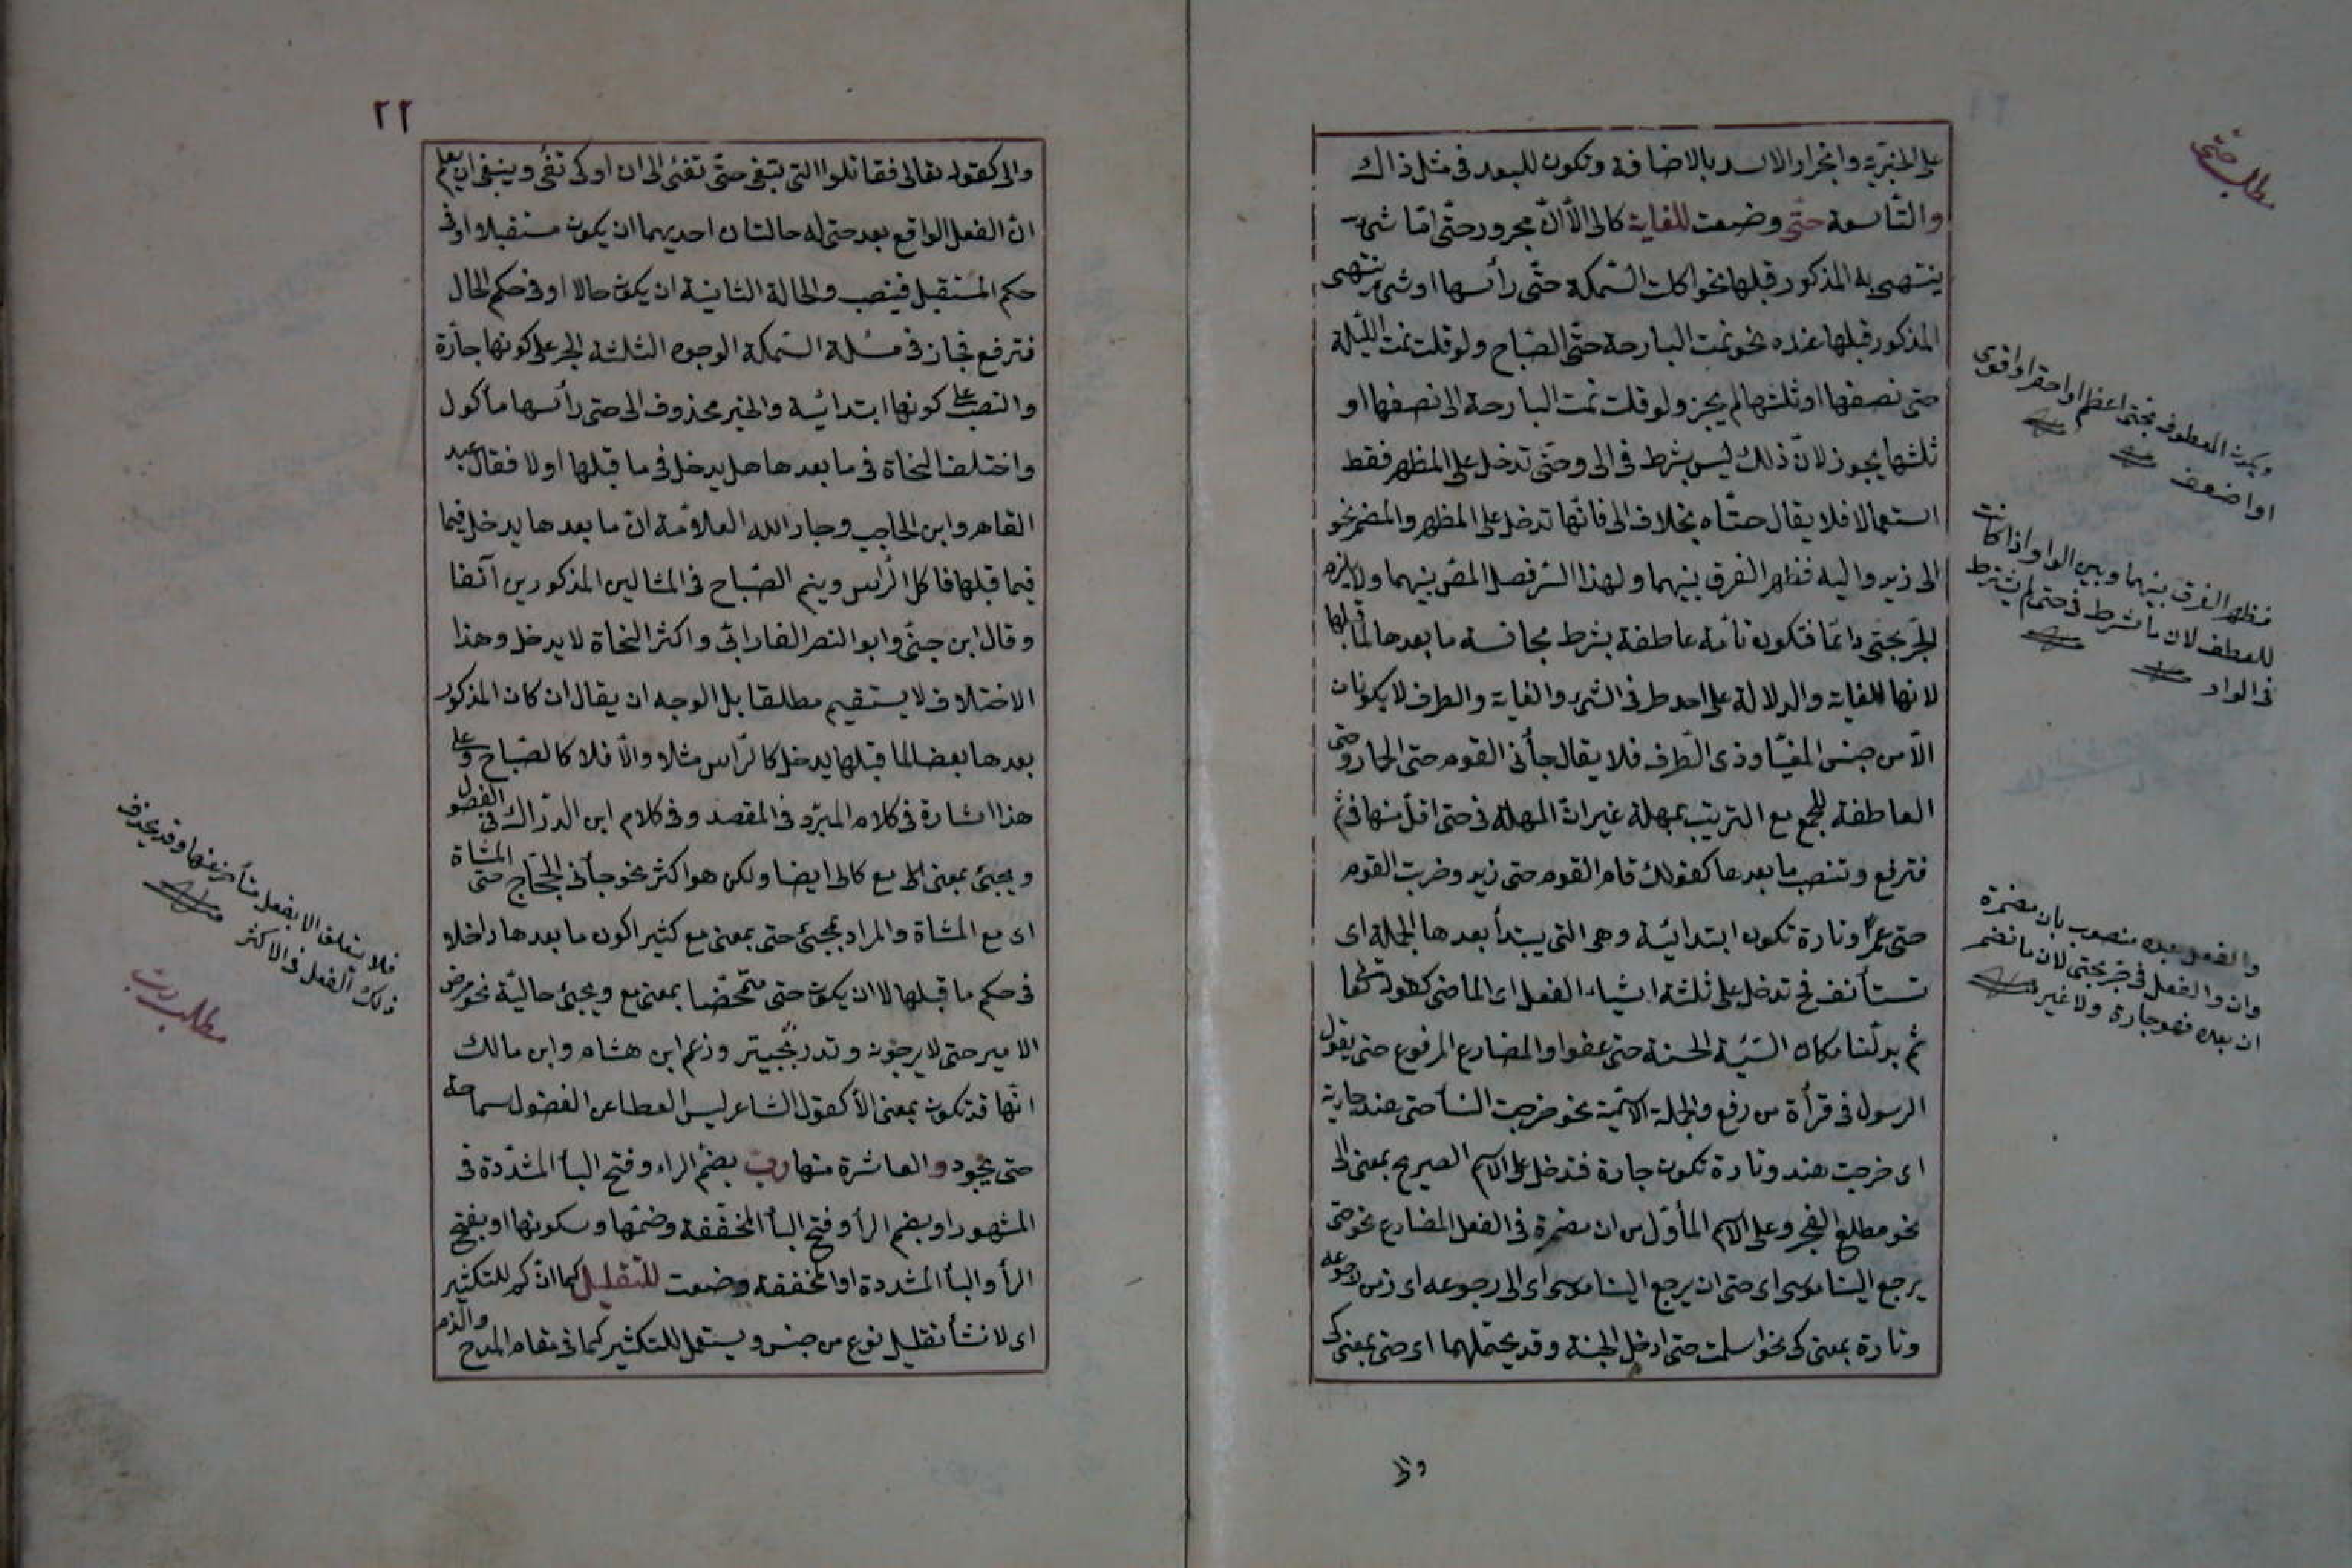 مطلب حتى
على الخبرية وانجرار الاسد بالاضافة وتكون للبعد فى مثل ذاك
والتاسعة حتى وضعت للغاية كالى الا ان مجرور حتى اما شىء
ينتهى به المذكور قبلها نحو اكلت السمكة حتى رأسها او شىء ينتهى
المذكور قبلها عنده نحو نمت البارحة حتى الصباح ولو قلت نمت الليلة
حتى نصفها او ثلثها لم يجز ولو قلت نمت البارحة الى نصفها او
ثلثها يجوز لان ذلك ليس بشرط فى الى وحتى تدخل على المظهر فقط
استعمالا فلا يقال حتاه بخلاف الى فانها تدخل على المظهر والمضمر نحو
الى زيد واليه فظهر الفرق بينهما ولهذا السر فصل المص بينهما ولا يلزم
الجر بحتى دائما فتكون تارة عاطفة بشرط مجانسة ما بعدها لما قبلها
لانها للغاية والدلالة على احد طرفى الشىء والغاية والطرف لا يكونان
الا من جنس المغيا وذى الطرف فلا يقال جأنى القوم حتى الحار وحتى
العاطفة للجمع مع الترتيب بمهلة غير ان المهلة فى حتى اقل منها فى ثم
فترفع وتنصب ما بعدها كقولك قام القوم حتى زيد وضربت القوم
حتى عمرا وتارة تكون ابتدائية وهى التى يبتدأ بعدها الجملة اى
تستأنف فح تدخل على ثلثة اشياء الفعل اى الماضى كقوله تعا
ثم بدلنا مكان السيئة الحسنة حتى عفوا والمضارع المرفوع حتى يقول
الرسول فى قرأة من رفع والجملة الاسمية نحو خرجت النسأ حتى هند خارجة
اى خرجت هند وتارة تكون جارة فتدخل على الاسم الصريح بمعنى الى
نحو مطلع الفجر وعلى الاسم المأول من ان مضمرة فى الفعل المضارع نحو حتى
يرجع الينا موسى اى حتى ان يرجع الينا موسى اى الى رجوعه اى زمن رجوعه
وتارة بمعنى كى نحو اسلمت حتى ادخل الجنة وقد يحتملهما اى حتى بمعنى كى
والى
ويكون المعطوف بحتى اعظم او احقر او اقوى
او اضعف
فظهر الفرق بينهما وبين الواو اذا كانت
للعطف لان ما شرط فى حتى لم يشترط
فى الواو
والفعل بعده منصوب بان مضمرة
وان والفعل فى جر بحتى لان ما تضمر
ان بعده فهو جارة ولا غير
٢٢
والى كقوله تعالى فقاتلوا التى تبغى حتى تفئ الى ان او كى تفى وينبغى ان يعلم
ان الفعل الواقع بعد حتى له حالتان احديهما ان يكون مستقبلا او فى
حكم المستقبل فينصب والحالة الثانية ان يكون حالا او فى حكم الحال
فترفع فجاز فى مسئلة السمكة الوجوه الثلثة الجر على كونها جارة
والنصب على كونها ابتدائية والخبر محذوف الى حتى رأسها مأكول
واختلف النحاة فى ما بعدها هل يدخل فى ما قبلها او لا فقال عبد
القاهر وابن الحاجب وجار الله العلامة ان ما بعدها يدخل فيما
فيما قبلها فاكل الرأس وينم الصباح فى المثالين المذكورين آنفا
وقال ابن جنى وابو النصر الفارابى واكثر النحاة لا يدخل وهذا
الاختلاف لا يستقيم مطلقا بل الوجه ان يقال ان كان المذكور
بعدها بعضا لما قبلها يدخل كالرأس مثلا والا فلا كالصباح وعلى
هذا اشارة فى كلام المبرد فى المقصد وفى كلام ابن الدراك فى الفصول
ويجئ بمعنى مع كالى ايضا ولكن هو اكثر نحو جأنى الحجاج حتى المشاة
اى مع المشاة والمراد بمجئ حتى بمعنى مع كثيرا كون ما بعدها داخلا
فى حكم ما قبلها لا ان يكون حتى متمحضا بمعنى مع ويجئ حالية نحو مرض
الامير حتى لا يرجون وزعم ابن هشام وابن مالك
انها قد تكون بمعنى الا كقول الشاعر ليس العطا من الفضول سماحة
حتى يجود والعاشرة منها رب بضم الراء وفتح البأ المشددة فى
المشهور او بضم الرأ وفتح البأ المخففة وضمها وسكونها او بفتح
الرأ والبأ المشددة او المخففة وضعت للتقليل كما ان كم للتكثير
اى لانشأ تقليل نوع من جنس ويستعمل للتكثير كما فى مقام المدح والذم
فلا يتعلق الا بفعل يتأخر عنها وقد يحذف
ذلك الفعل فى الاكثر
مطلب رب